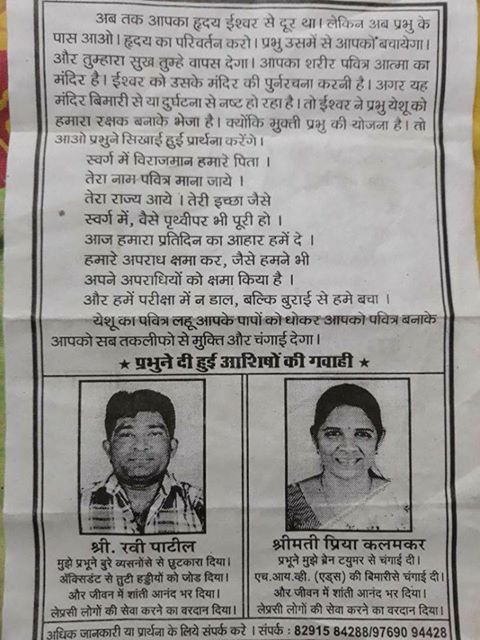 अब तक आपका हृदय ईश्वर से दूर था। लेकिन अब प्रभु के
पास आओ। हृदय का परिवर्तन करो। प्रभु उसमें से आपकों बचायेगा।
और तुम्हारा सुख तुम्हे वापस देगा। आपका शरीर पवित्र आत्मा का
मंदिर है। ईश्वर को उसके मंदिर की पुर्नरचना करनी है। अगर यह
मंदिर बिमारी से या दुर्घटना से नष्ट हो रहा है। तो ईश्वर ने प्रभु येशू को
हमारा रक्षक बनाके भेजा है। क्योंकि मुक्ती प्रभु की योजना है। तो
आओ प्रभुने सिखाई हुई प्रार्थना करेंगे।
स्वर्ग में विराजमान हमारे पिता ।
तेरा नाम पवित्र माना जाये ।
तेरा राज्य आये । तेरी इच्छा जैसे
स्वर्ग में, वैसे पृथ्वीपर भी पूरी हो ।
आज हमारा प्रतिदिन का आहार हमें दे ।
हमारे अपराध क्षमा कर, जैसे हमने भी
अपने अपराधियों को क्षमा किया है ।
और हमें परीक्षा में न डाल, बल्कि बुराई से हमे बचा ।
येशू का पवित्र लहू आपके पापों को धोकर आपको पवित्र बनाके
आपको सब तकलीफो से मुक्ति और चंगाई देगा।
★ प्रभुने दी हुई आशिषों की गवाही ★
श्री. रवी पाटील
मुझे प्रभूने बुरे व्यसनोसे से छुटकारा दिया।
ॲक्सिडंट से तुटी हड्डीयों को जोड दिया।
और जीवन में शांती आनंद भर दिया।
लेप्रसी लोगों की सेवा करने का वरदान दिया।
श्रीमती प्रिया कलमकर
प्रभूने मुझे ब्रेन टयुमर से चंगाई दी।
एच.आय.व्ही. (एड्स) की बिमारीसे चंगाई दी।
और जीवन में शांती आनंद भर दिया।
लेप्रसी लोगों की सेवा करने का वरदान दिया।
अधिक जानकारी या प्रार्थना के लिये संपर्क करे । संपर्क : 82915 84288/97690 94428